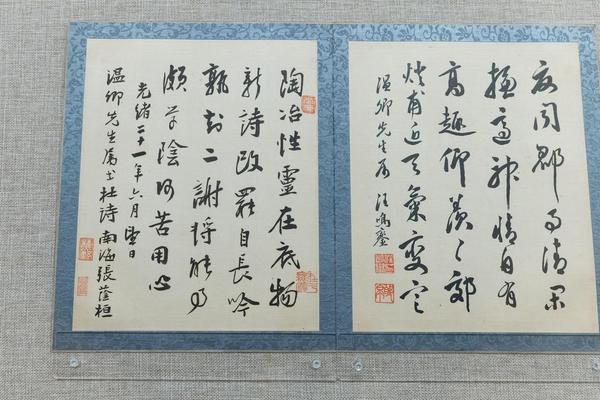 聞郡清
神情自有
高趣仰羨〻
甫近天氣
溫卿先生屬 汪鳴鑾
陶冶性靈在底物
新詩改罷自長吟
孰知二謝將能事
頗學陰何苦用心
光緒二十一年六月望日
溫卿先生屬書杜詩 南海張蔭桓